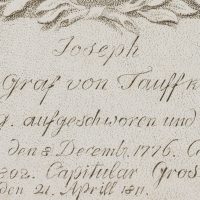 Joseph
Graf von Tauffk
g. aufgeschworen und
den 8 Decemb. 1776. C
802. Capitular Gros
den 21. Aprill 1811.